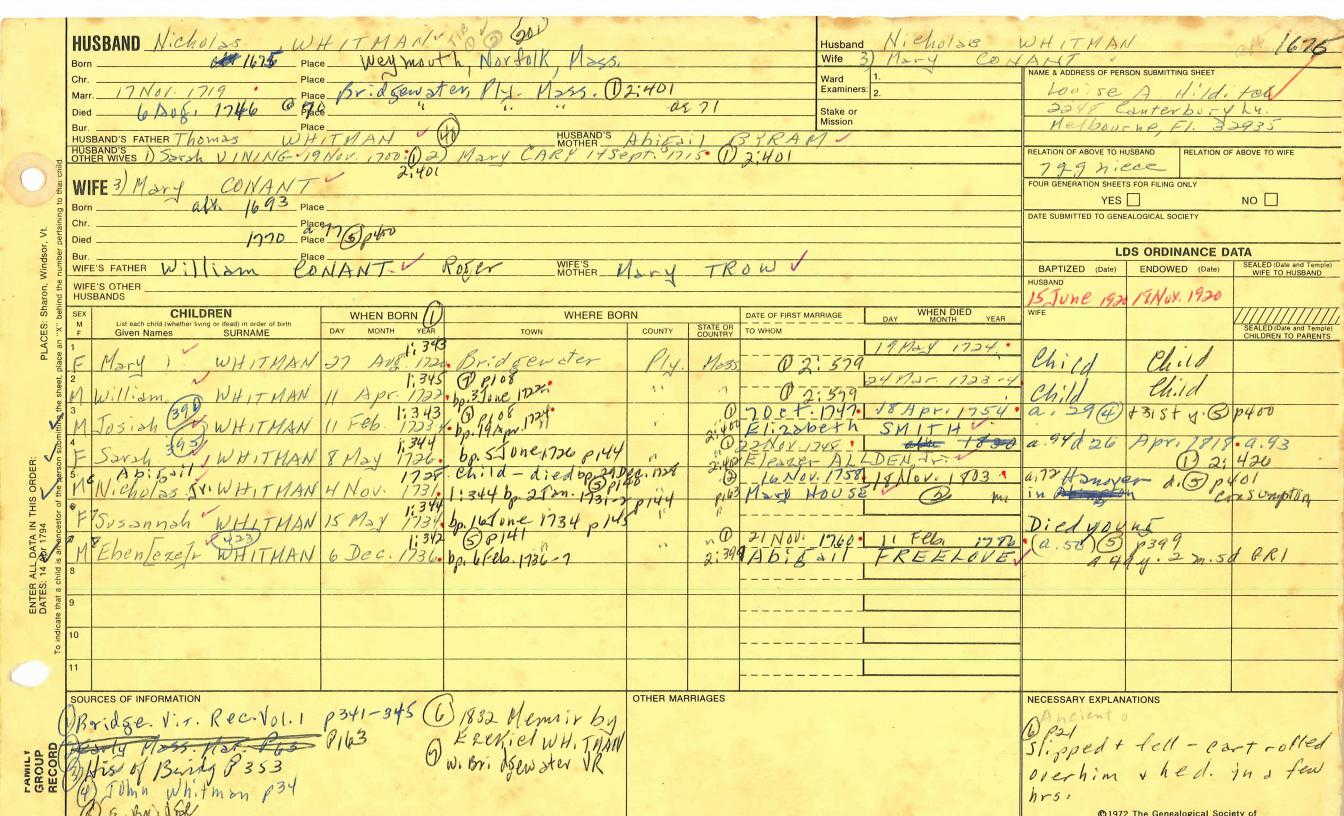 HUSBAND Nicholas WHITMAN 201
Born 1675 Place Weymouth, Norfolk, Mass.
Chr. Place
Marr. 17 Nov. 1719 Place Bridgewater, Ply. Mass. ① 2:401
Died 6 Aug. 1746 Place " " " ae 71
Bur. Place
HUSBAND'S FATHER Thomas WHITMAN 40 HUSBAND'S MOTHER Abigail BYRAM
HUSBAND'S OTHER WIVES 1) Sarah VINING 19 Nov. 1700 ① 2) Mary CARY 14 Sept. 1715 ① 2:401
2:401
WIFE 3) Mary CONANT
Born aft. 1693 Place
Chr. Place
Died 1770 Place a 77 ⑤ p400
Bur. Place
WIFE'S FATHER William CONANT Roger WIFE'S MOTHER Mary TROW
WIFE'S OTHER HUSBANDS
Husband Nicholas WHITMAN 1675
Wife 3) Mary CONANT
Ward Examiners: 1.
2.
Stake or Mission
NAME & ADDRESS OF PERSON SUBMITTING SHEET
Louise A
2248 Canterbury Ln.
Melbourne, Fl. 32935
RELATION OF ABOVE TO HUSBAND RELATION OF ABOVE TO WIFE
7gg niece
FOUR GENERATION SHEETS FOR FILING ONLY
YES NO
DATE SUBMITTED TO GENEALOGICAL SOCIETY
LDS ORDINANCE DATA
BAPTIZED (Date) ENDOWED (Date) SEALED (Date and Temple) WIFE TO HUSBAND
HUSBAND
15 June 1920 17 Nov. 1920
WIFE
SEALED (Date and Temple) CHILDREN TO PARENTS
SEX M F CHILDREN List each child (whether living or dead) in order of birth Given Names SURNAME
WHEN BORN ① DAY MONTH YEAR
WHERE BORN TOWN COUNTY STATE OR COUNTRY
DATE OF FIRST MARRIAGE TO WHOM
WHEN DIED DAY MONTH YEAR
1 F Mary WHITMAN 27 Aug. 1720 1:343 Bridgewater Ply. Mass ① 2:579 19 May 1724 Child Child
2 M William WHITMAN 11 Apr. 1722 1:345 ⑦ p108 bp. 3 June 1722 " " ① 2:579 24 Mar. 1723-4 Child Child
3 M Josiah 394 WHITMAN 11 Feb. 1723 1:343 p108 bp. 19 Apr. 1724 " ① 7 Oct. 1747 18 Apr. 1754 Elizabeth SMITH a. 29 ④ + 31st y. ⑤ p400
4 F Sarah 395 WHITMAN 8 May 1726 1:344 bp. 5 June 1726 p144 ① 22 Nov. 1748 Eleazer ALDEN, Jr. a. 94 d 26 Apr. 1818 a. 93
① 2:420
5 Abigail 1728 child - died bp. 29 Dec. 1728
6 M Nicholas Jr. WHITMAN 4 Nov. 1731 1:344 bp 2 Jan. 1731-2 p144 16 Nov. 1758 18 Nov. 1803 Mary HOUSE p163 a. 72 Hanover d. ⑤ p401
in consumption
7 F Susannah WHITMAN 15 May 1734 1:344 bp. 16 June 1734 p145 Died young
M Eben[eze]r 423 WHITMAN 6 Dec. 1736 1:342 ⑤ p141 bp. 6 Feb. 1736-7 ① 21 Nov. 1760 11 Feb. 1786 2:399 Abigail FREELOVE (a. 50) ⑤ p399
a 49 y. 2 m. 5d GR1
8
9
10
11
SOURCES OF INFORMATION
① Bridge. Vit. Rec. Vol. 1 p341-345
Early Mass. Mar. P63 P163
③ His of Bridg P353
④ John Whitman p34
⑥ 1832 Memoir by
Ezekiel WHITMAN
⑦ W. Bridgewater VR
OTHER MARRIAGES
NECESSARY EXPLANATIONS
⑥ p21
Slipped & fell - cart rolled
over him & he d. in a few
hrs.
©1972 The Genealogical Society of
PLACES: Sharon, Windsor, Vt.
ENTER ALL DATA IN THIS ORDER:
DATES: 14 Apr 1794
FAMILY GROUP RECORD